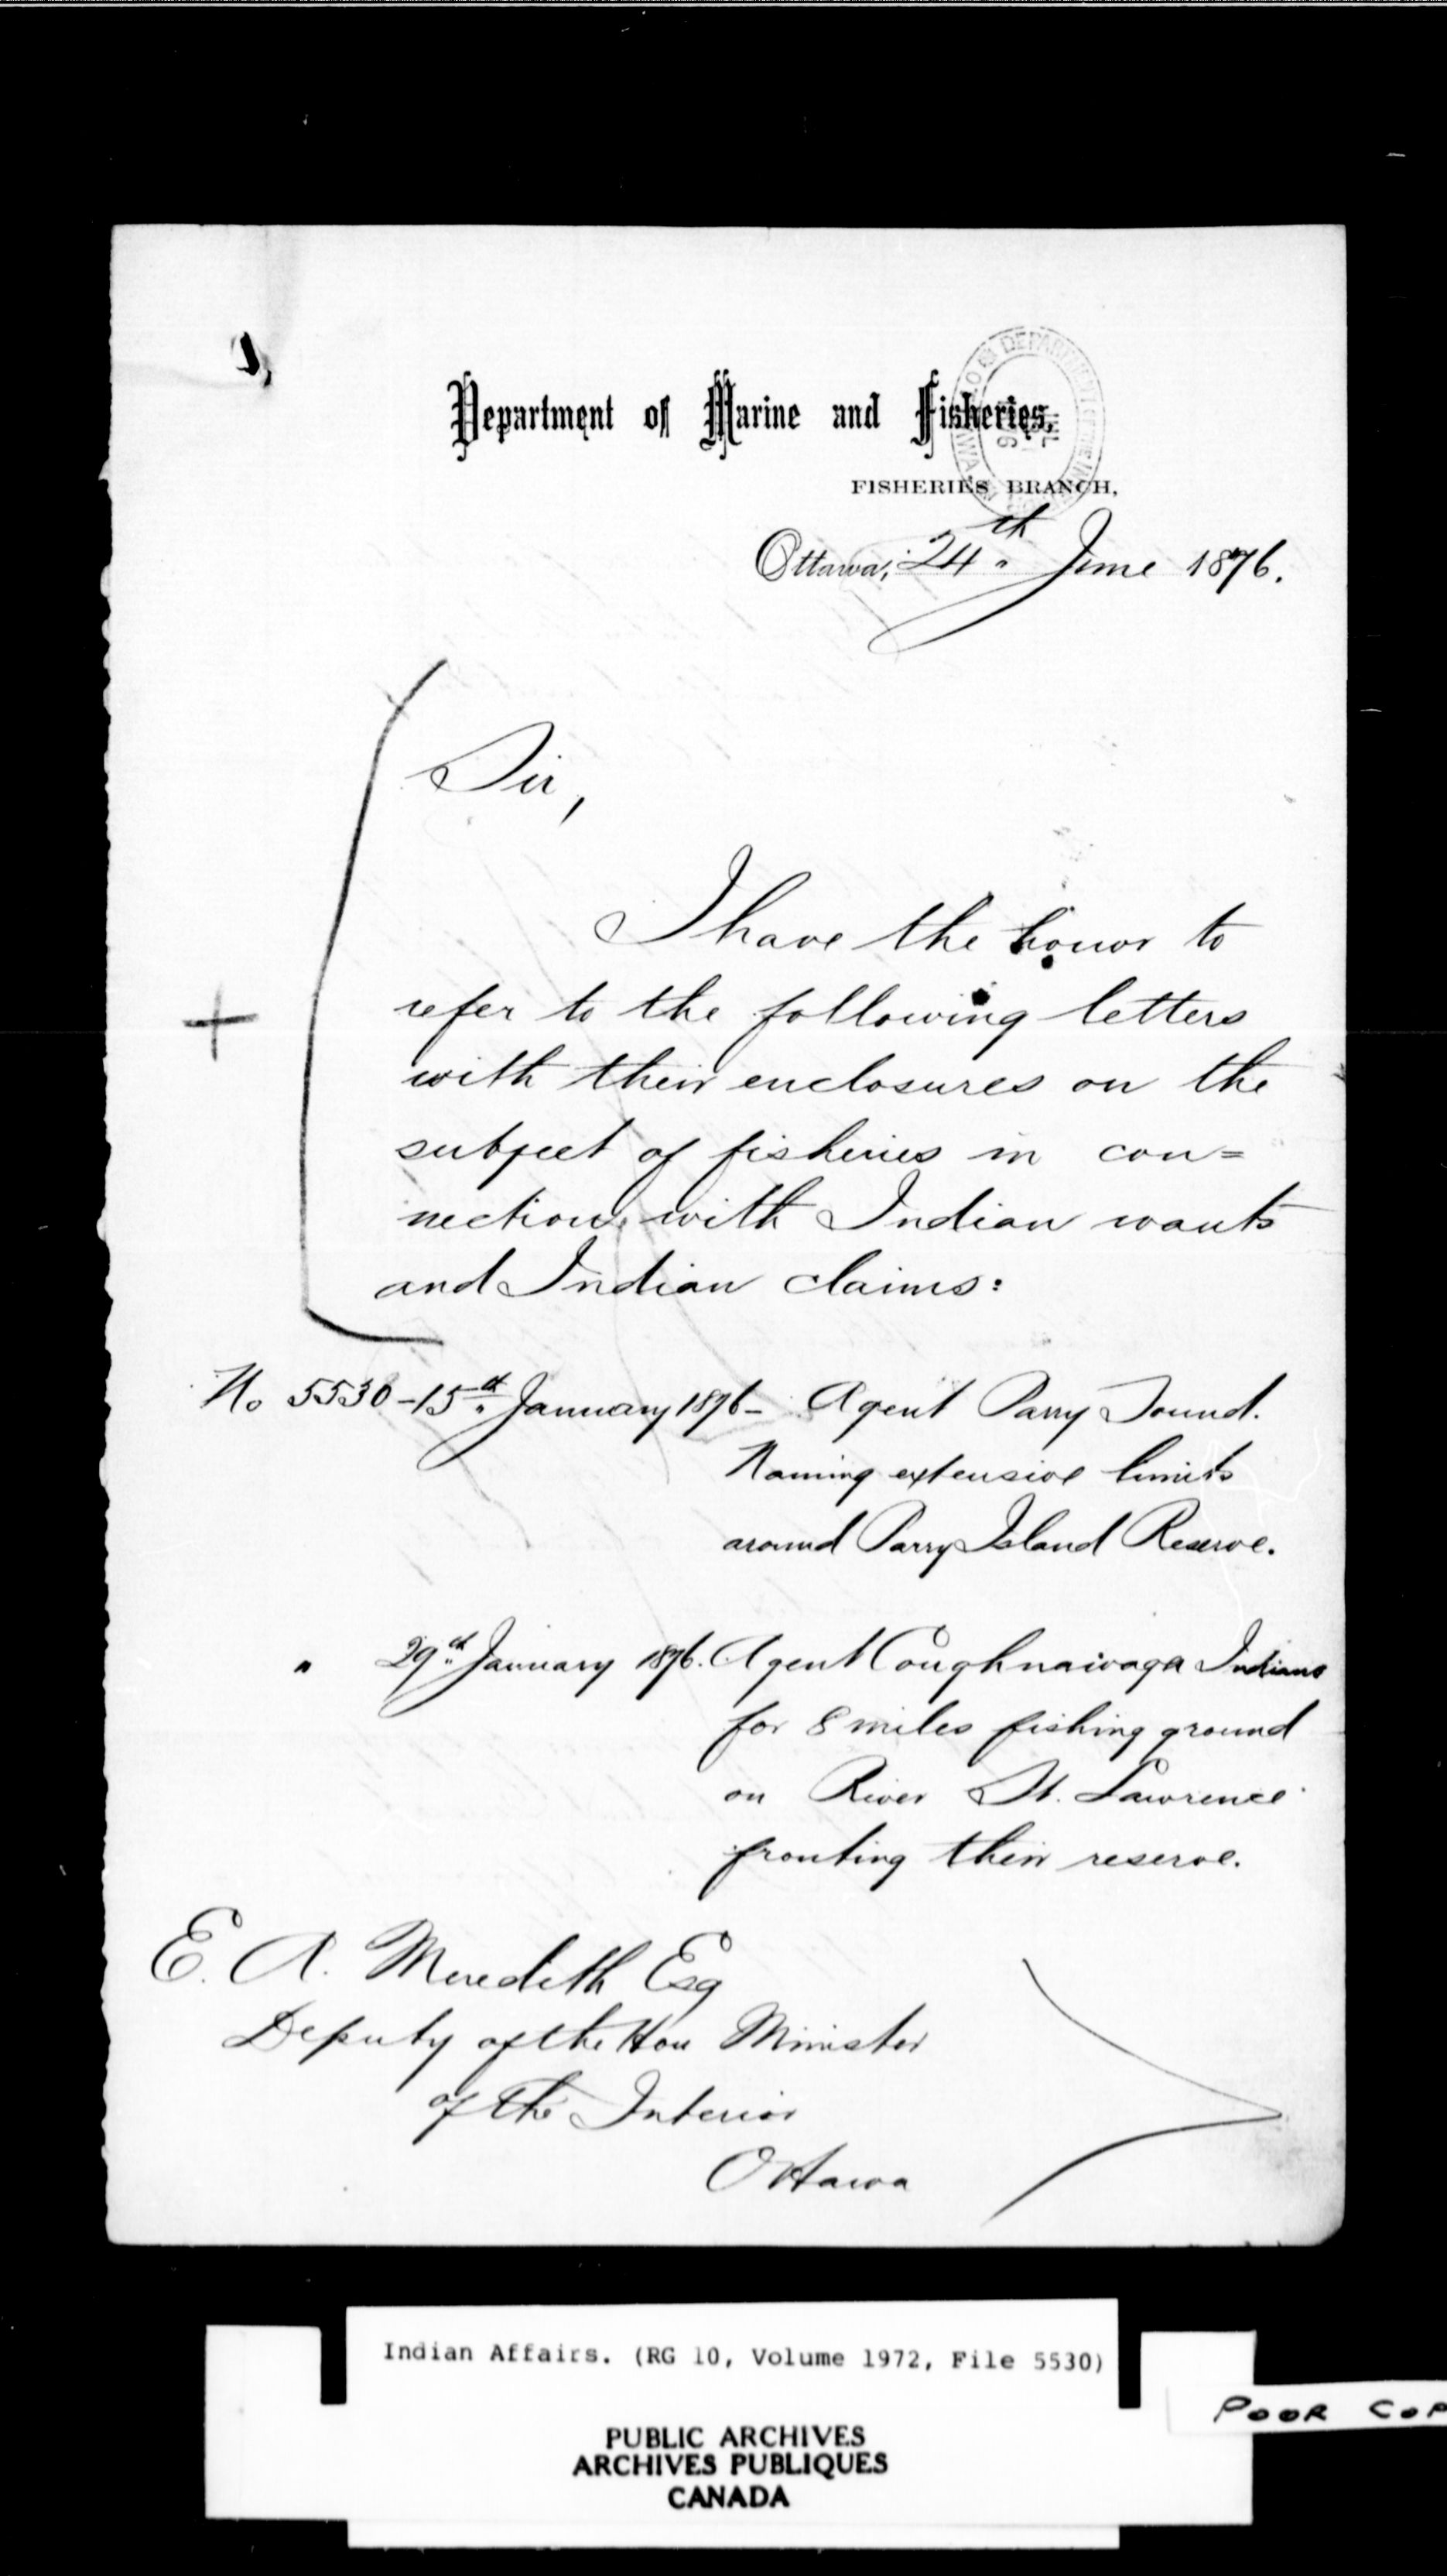 1,
Department of Marine and Fisheries,
FISHERIES BRANCH,
Ottawa, 24th June 1876.
Sir,
I have the honor to
refer to the following letters
with their enclosures on the
subject of fisheries in con=
nection with Indian wants
and Indian claims:
+
No 5530 - 15th January 1876 - Agent Parry Sound.
Naming extensive limits
around Parry Island Reserve.
" 29th January 1876. Agent Coughnawaga Indians
for 8 miles fishing ground
on River St. Lawrence
fronting their reserve.
E. A. Meredith Esq
Deputy of the Hon Minister
of the Interior
Ottawa
Indian Affairs. (RG 10, Volume 1972, File 5530)
POOR COP
PUBLIC ARCHIVES
ARCHIVES PUBLIQUES
CANADA